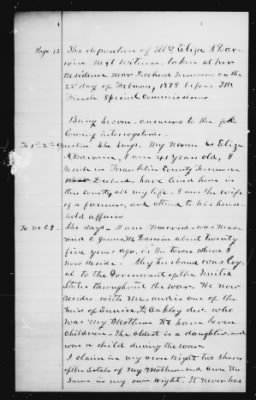 Page 13. The deposition of Mrs Eliza A Dar-
win Next Witness. taken at her
residence near Tennessee on the
22d day of February 1878 before
Special Commissioner
Being Sworn answers to the fol-
lowing interrogations.
To 1st 2d question She Says. My Name is Eliza
A Darwin, I am 41 years old, I
reside in Franklin County Tennessee
have lived here in
this county all my life. I am the wife
of a farmer, and attend to his house-
hold affairs.
She Says. I am married was mar-
ried to James M Darwin about twenty
five years ago, in the town where I
now reside. My husband was loy-
al to the Government of the United
States throughout the war. He now
resides with me, and is one of the
heirs of dec. who
was my Mother. We have Seven
children. The oldest is a daughter, and
was a child during the war.
I claim in my own right two Shares
of the Estate of my Mother and own the
Same in my own right. It never has